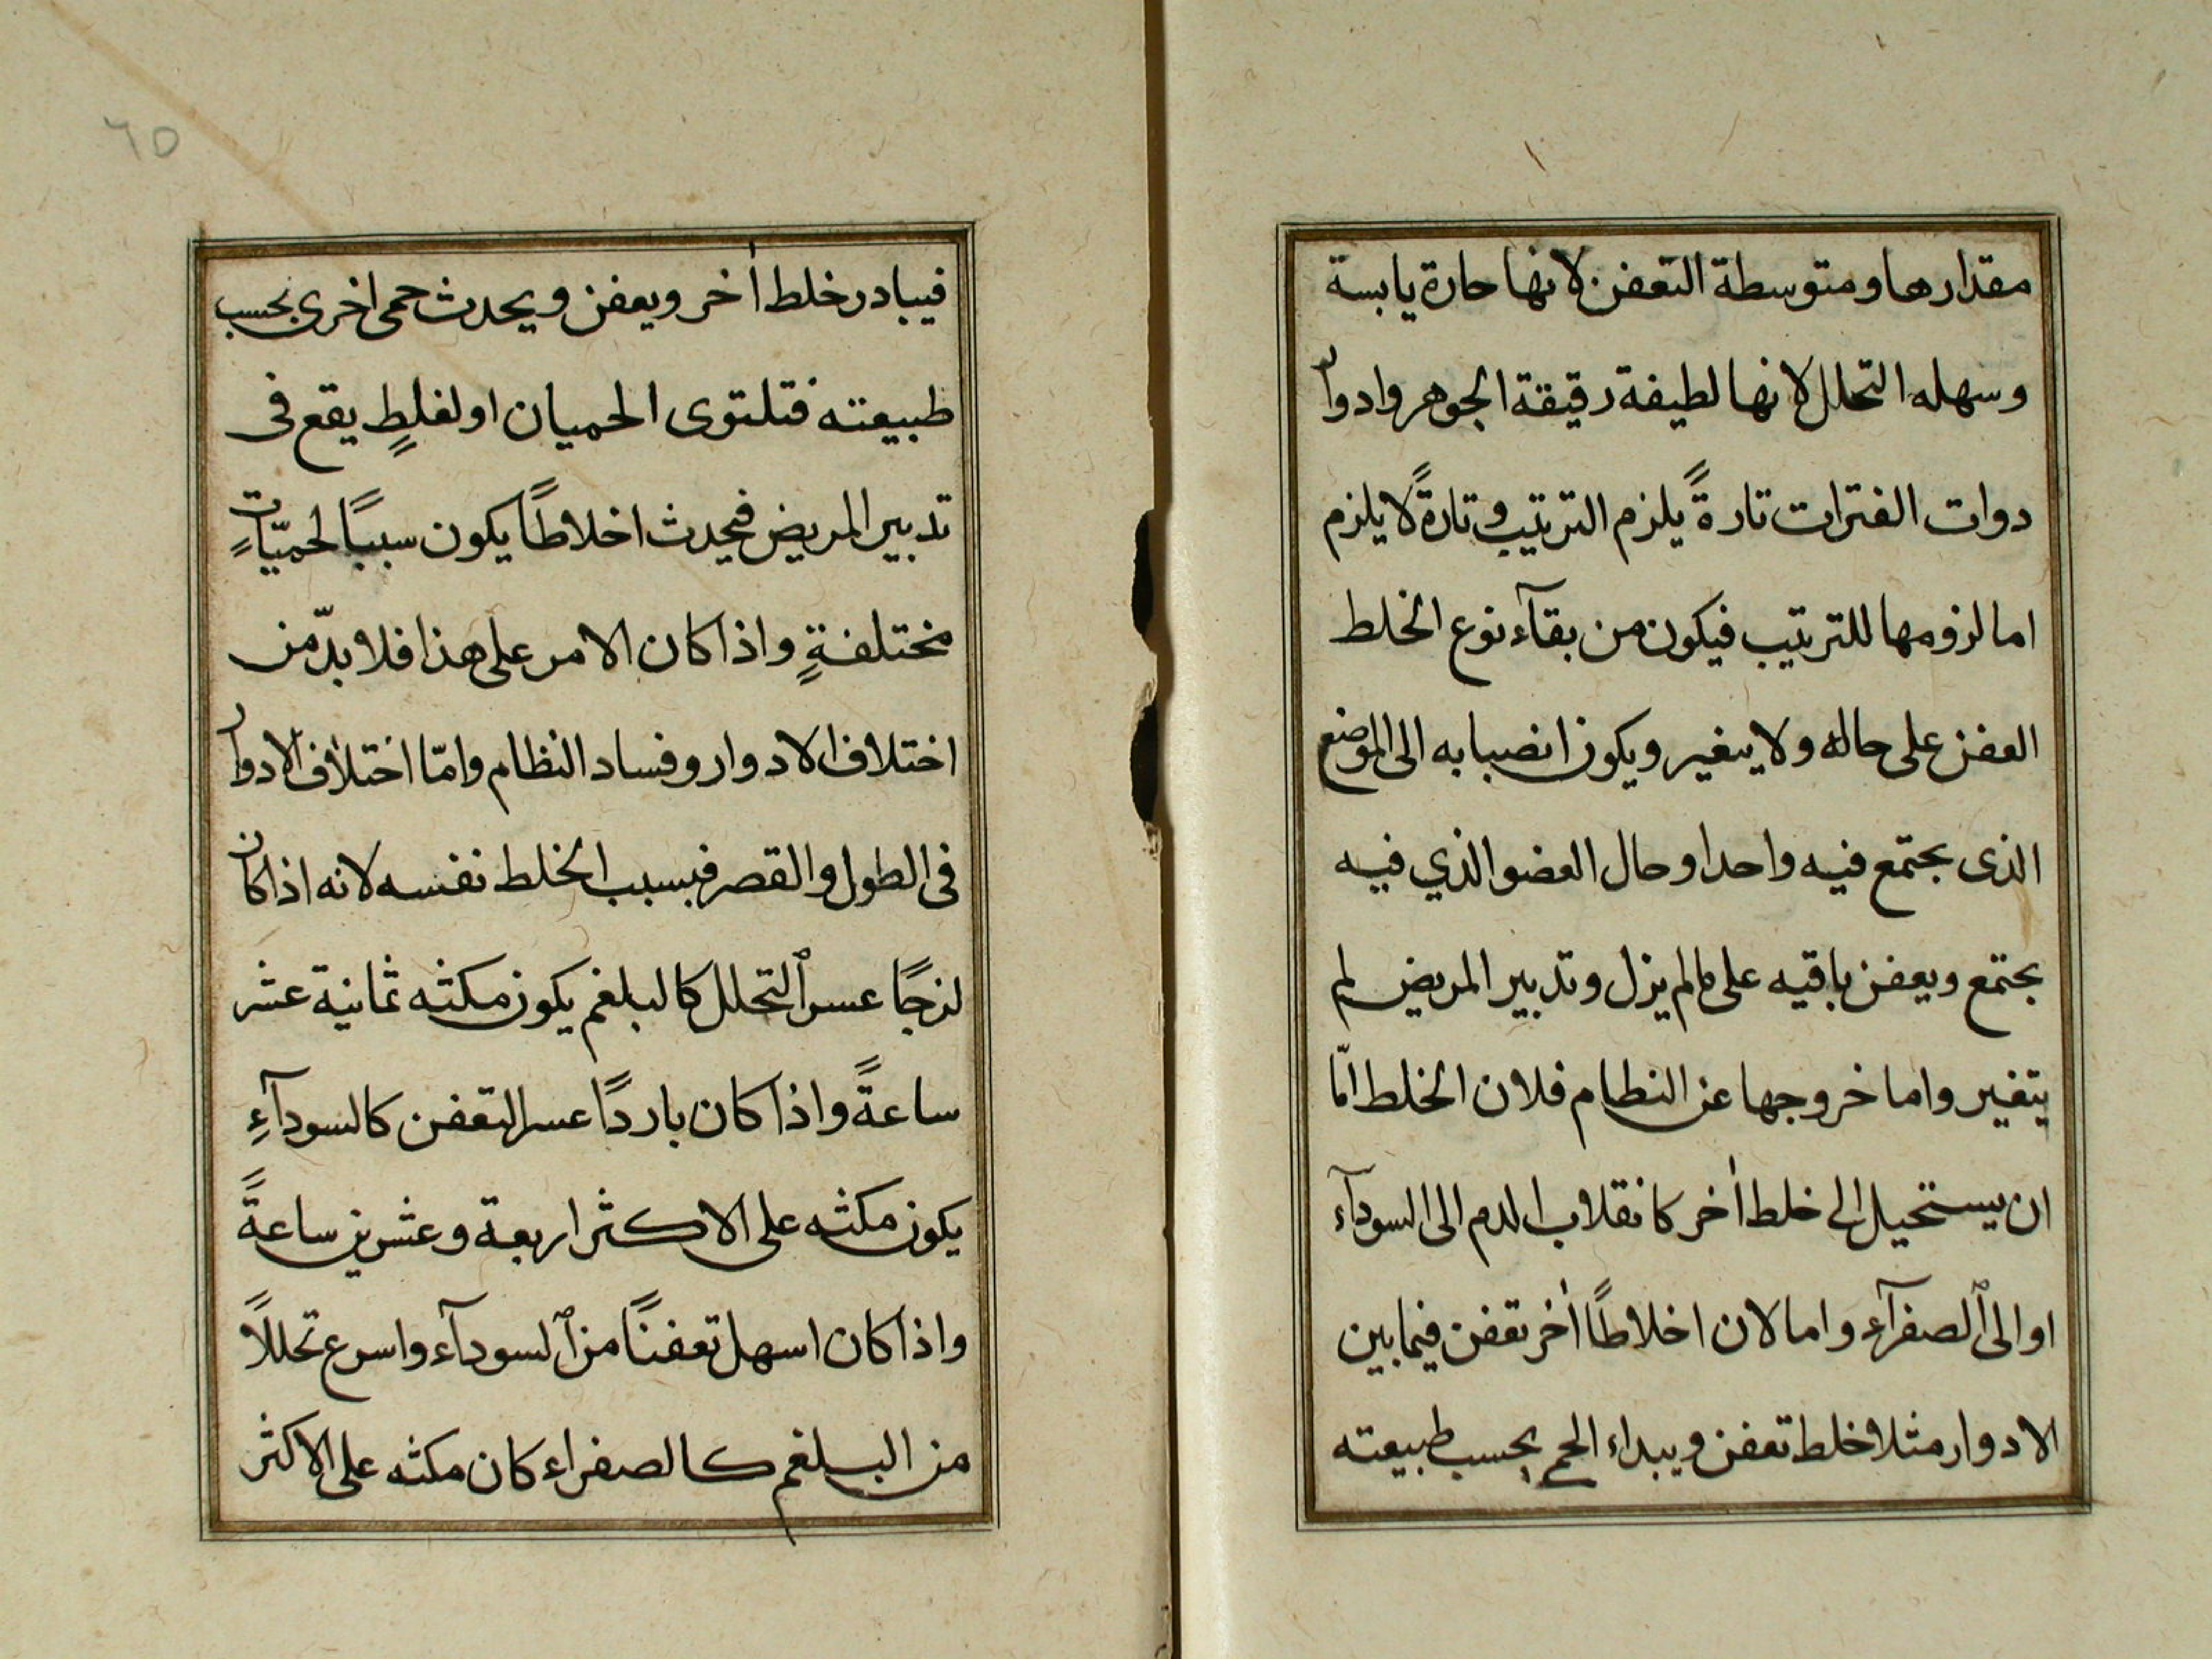 مقدارها ومتوسطة التعفن لانها حارة يابسة
وسهله التحلل لانها لطيفة رقيقة الجوهر وادوار
دوات الفترات تارةً يلزم الترتيب وتارةً لا يلزم
اما لزومها للترتيب فيكون من بقآء نوع الخلط
العفن على حاله ولا يتغير ويكون انصبابه الى الموضع
الذى يجتمع فيه واحدا وحال العضو الذي فيه
يجتمع ويعفن باقيه على مالم يزل وتدبير المريض لم
يتغير واما خروجها عن النظام فلان الخلط امّا
ان يستحيل الى خلط أخر كانقلاب الدم الى السودآء
او الى الصفرآء واما لان اخلاطًا أخر تعفن فيما بين
الادوار مثلا خلط تعفن ويبداء الحمى بحسب طبيعته
٦٥
فيبادر خلط أخر ويعفن ويحدث حمى اخرى بحسب
طبيعته فتلتوى الحميان او لغلطٍ يقع فى
تدبير المريض فيحدث اخلاطًا يكون سببًا لحميّاتٍ
مختلفةٍ واذا كان الامر على هذا فلا بدّ من
اختلاف الادوار وفساد النظام وامّا اختلاف الادوار
فى الطول والقصر فبسبب الخلط نفسه لانه اذا كان
لزجًا عسر التحلل كالبلغم يكون مكثه ثمانية عشر
ساعةً واذا كان باردًا عسر التعفن كالسودآءِ
يكون مكثه على الاكثر اربعة وعشرين ساعةً
واذا كان اسهل تعفنًا من السودآء واسرع تحللًا
من البلغم كالصفراء كان مكثه على الاكثر